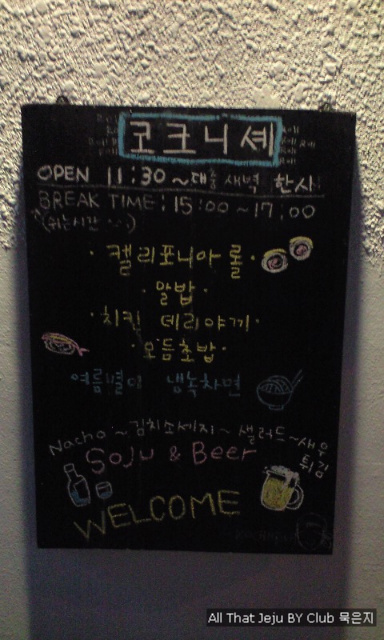 코크니셰
OPEN 11:30 ~ 대충 새벽 한시
BREAK TIME: 15:00 ~ 17:00
(쉬는시간
· 캘리포니아 롤 ·
· 말밥 ·
· 치킨 데리야끼 ·
· 모듬초밥 ·
여름별미 냉녹차면
Nacho ~ 김치소세지 ~ 샐러드 ~ 새우튀김
Soju & Beer
WELCOME
All That Jeju BY Club 묵은지